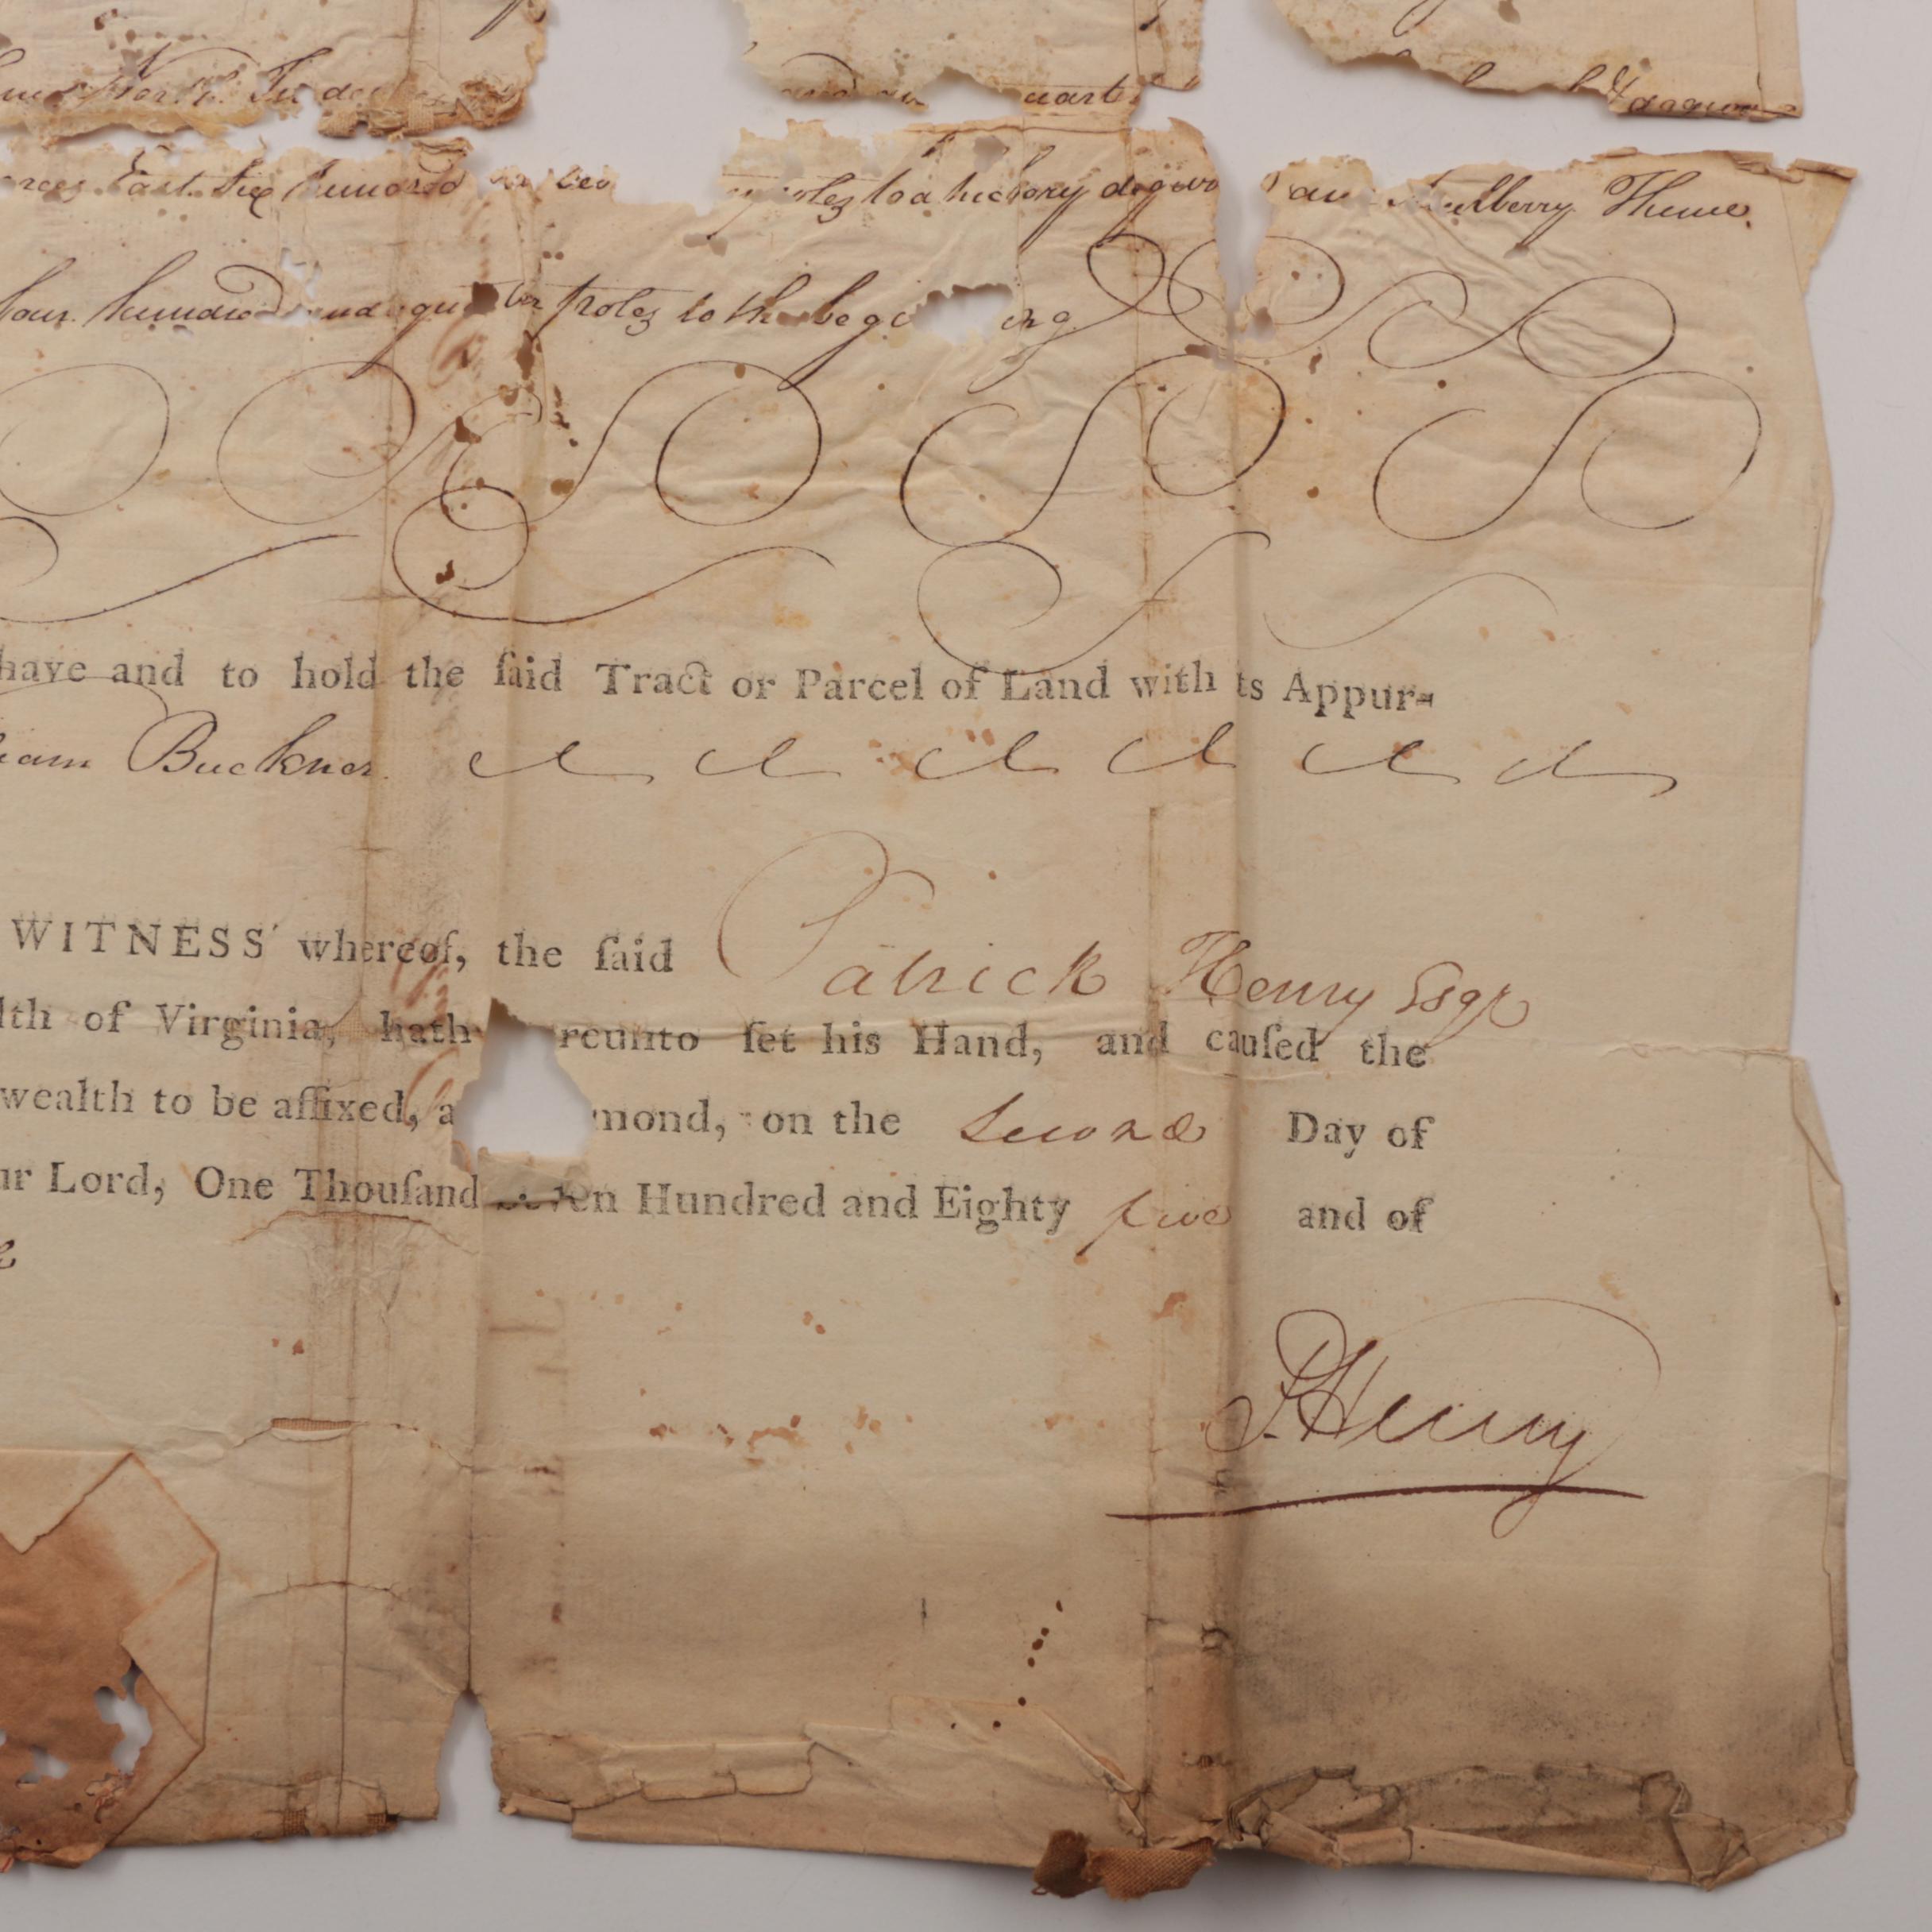 North
and
rees East Six hundred poles to a hickory dogwood and Mulberry Thence
four hundred and eq poles to the begi ing
have and to hold the ſaid Tract or Parcel of Land with ts Appur-
iam Buckner
WITNESS whereof, the ſaid Patrick Henry Esqr
lth of Virginia, hath reunto ſet his Hand, and cauſed the
wealth to be affixed, a mond, on the Second Day of
ur Lord, One Thouſand Seven Hundred and Eighty five and of
P. Henry